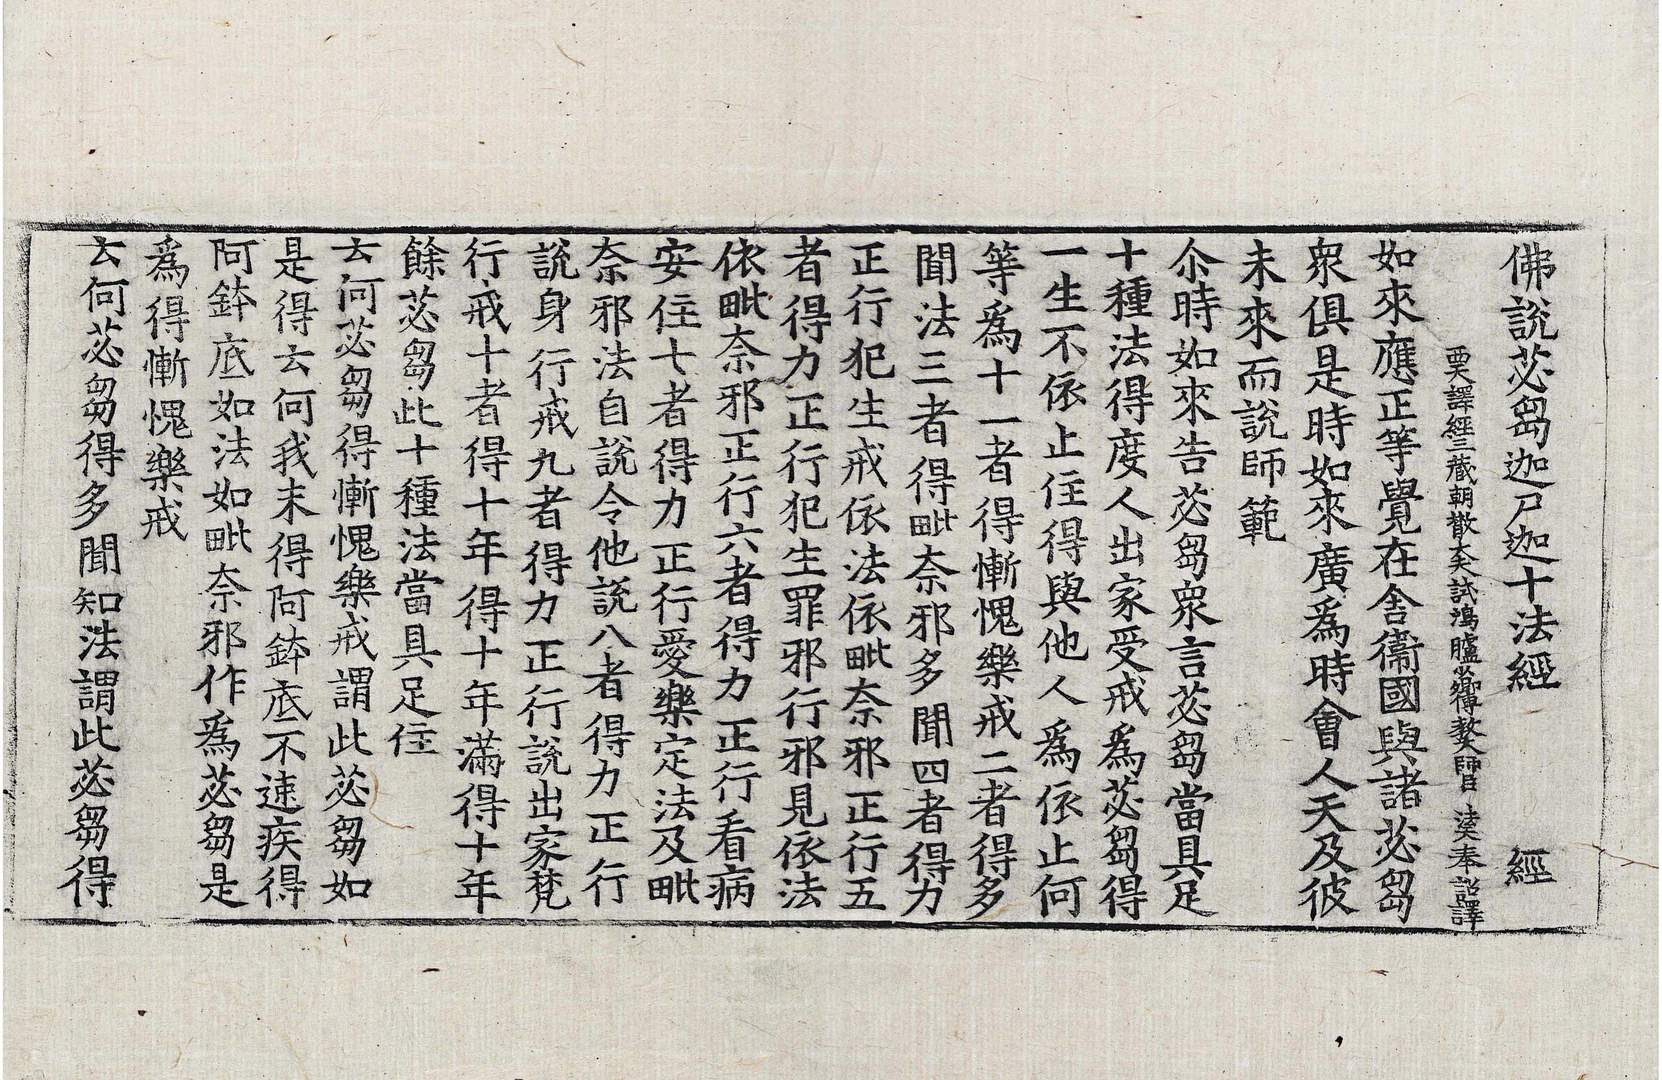 佛說苾芻迦尸迦十法經 經
西天譯經三藏朝散大夫試鴻臚少卿傳教大師臣 法天奉 詔譯
如來應正等覺在舍衞國與諸苾芻
衆俱是時如來廣爲時會人天及彼
未來而說師範
尒時如來告苾芻衆言苾芻當具足
十種法得度人出家受戒爲苾芻得
一生不依止住得與他人爲依止何
等爲十一者得慚愧樂戒二者得多
聞法三者得毗奈邪多聞四者得力
正行犯生戒依法依毗奈邪正行五
者得力正行犯生罪邪行邪見依法
依毗奈邪正行六者得力正行看病
安住七者得力正行愛樂定法及毗
奈邪法自說令他說八者得力正行
說身行戒九者得力正行說出家梵
行戒十者得十年得十年滿得十年
餘苾芻此十種法當具足住
云何苾芻得慚愧樂戒謂此苾芻如
是得云何我未得阿鉢底不速疾得
阿鉢底如法如毗奈邪作爲苾芻是
爲得慚愧樂戒
云何苾芻得多聞知法謂此苾芻得